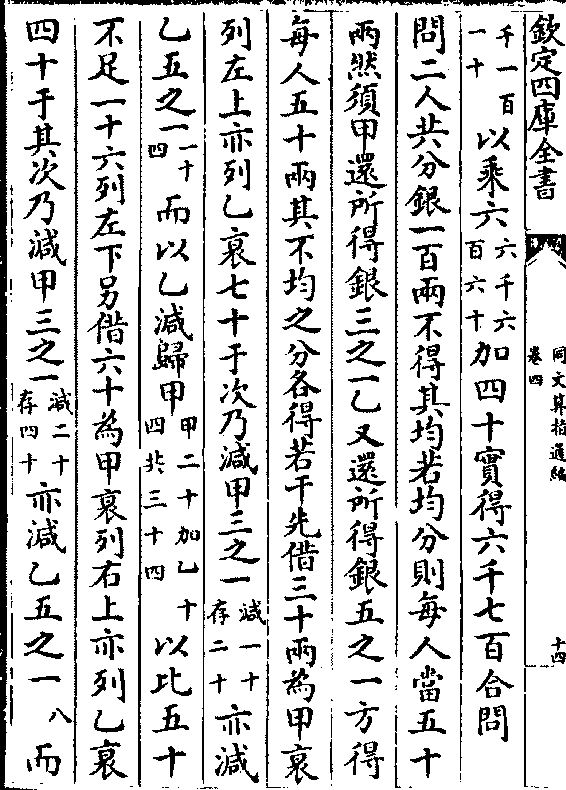 欽定四庫全書
同文算指通編
卷四
十四
千一百一十以乘六六千六百六十加四十實得六千七百合問
問二人共分銀一百兩不得其均若均分則每人當五十
兩然須甲還所得銀三之一乙又還所得銀五之一方得
每人五十兩其不均之分各得若干先借三十兩為甲衰
列左上亦列乙衰七十于次乃減甲三之一減一十存二十亦減
乙五之一一十四而以乙減歸甲甲二十加乙十四共三十四以比五十
不足一十六列左下另借六十為甲衰列右上亦列乙衰
四十于其次乃減甲三之一減二十存四十亦減乙五之一八而